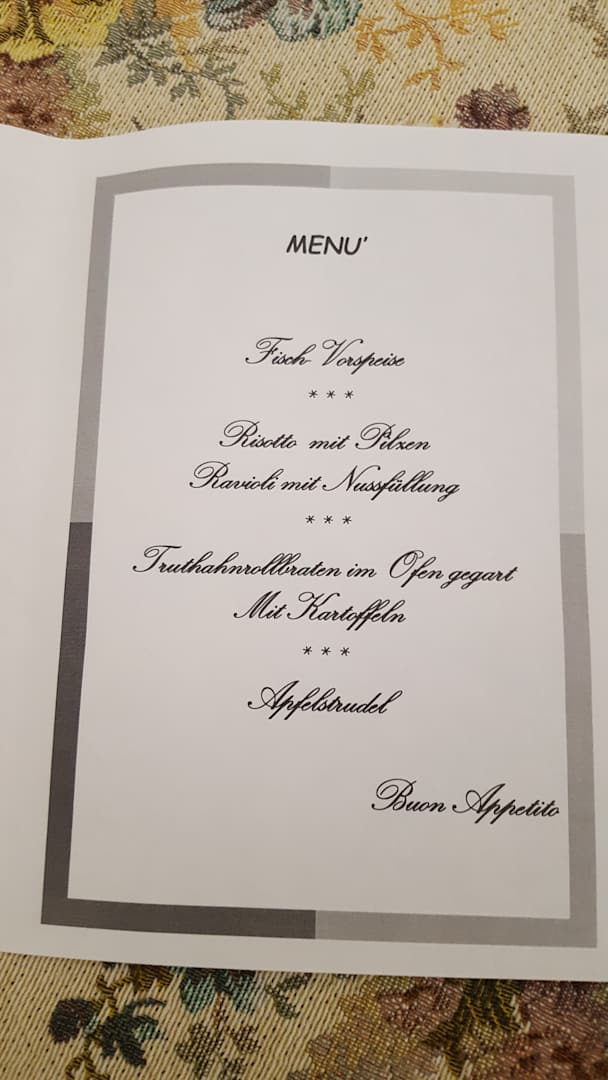 MENU'
Fisch-Vorspeise
* * *
Risotto mit Pilzen
Ravioli mit Nussfüllung
* * *
Truthahnrollbraten im Ofen gegart
Mit Kartoffeln
* * *
Apfelstrudel
Buon Appetito